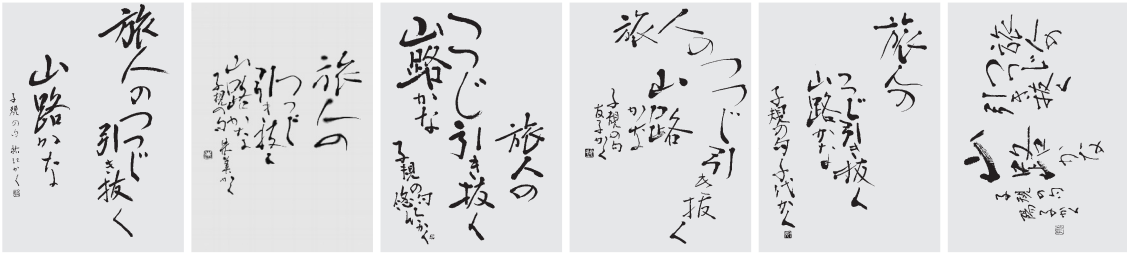 旅人のつつじ
引き抜く
山路かな
子規の句 かく
旅人の
つつじ
引き抜く
山路かな
子規の句 かく
旅人の
つつじ引き抜く
山路かな
子規の句 かく
旅人の
つつじ引
き抜く
山路
かな
子規の句
友子かく
旅人の
つつじ引き抜く
山路かな
子規の句 かく
旅人の
つつじ
引き抜く
山路
かな
子規の句
陽子かく